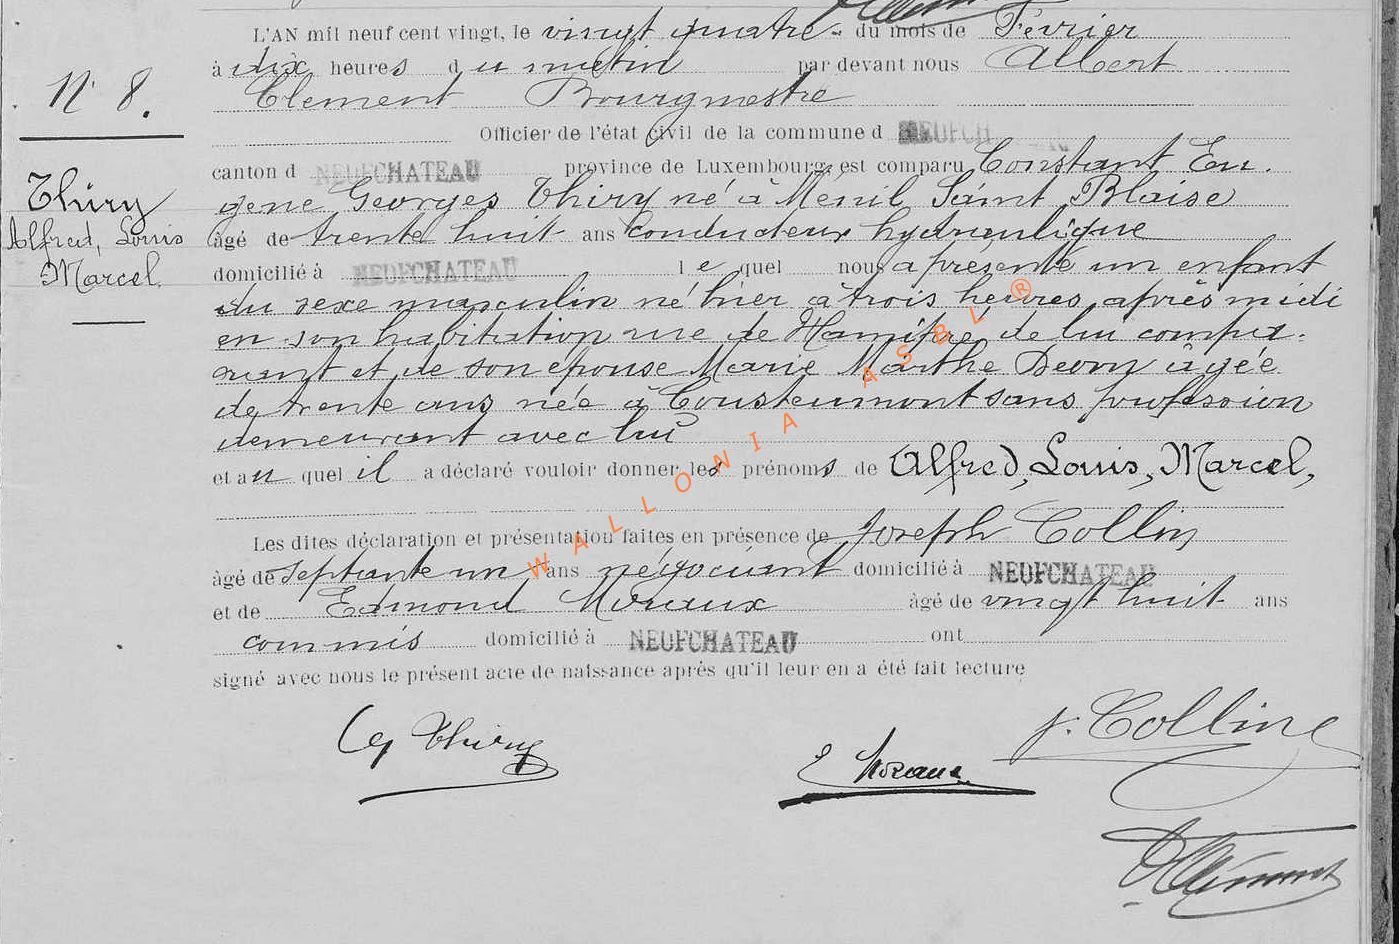 L'AN mil neuf cent vingt, le vingt quatre du mois de Février
à dix heures du matin par devant nous Albert
Clement Bourgmestre
Officier de l'état civil de la commune d NEUFCH
canton d NEUFCHATEAU province de Luxembourg, est comparu Constant Eu.
gene Georges Thiry né à Menil Saint Blaise
âgé de trente huit ans conducteur hydraulique
domicilié à NEUFCHATEAU lequel nous a présenté un enfant
du sexe masculin né hier à trois heures après midi
en son habitation rue de Hamipré de lui compa.
rant et de son épouse Marie Marthe Deom âgée
de trente ans née à Cousteumont sans profession
demeurant avec lui
et au quel il a déclaré vouloir donner les prénoms de Alfred, Louis, Marcel,
Les dites déclaration et présentation faites en présence de Joseph Collin
âgé de septante un ans négociant domicilié à NEUFCHATEAU
et de Edmond Moraux âgé de vingt huit ans
commis domicilié à NEUFCHATEAU ont
signé avec nous le présent acte de naissance après qu'il leur en a été fait lecture
N° 8.
Thiry
Alfred, Louis
Marcel.
Thiry
E Moraux
J. Colline
AClément
WALLONIA ASBL ®